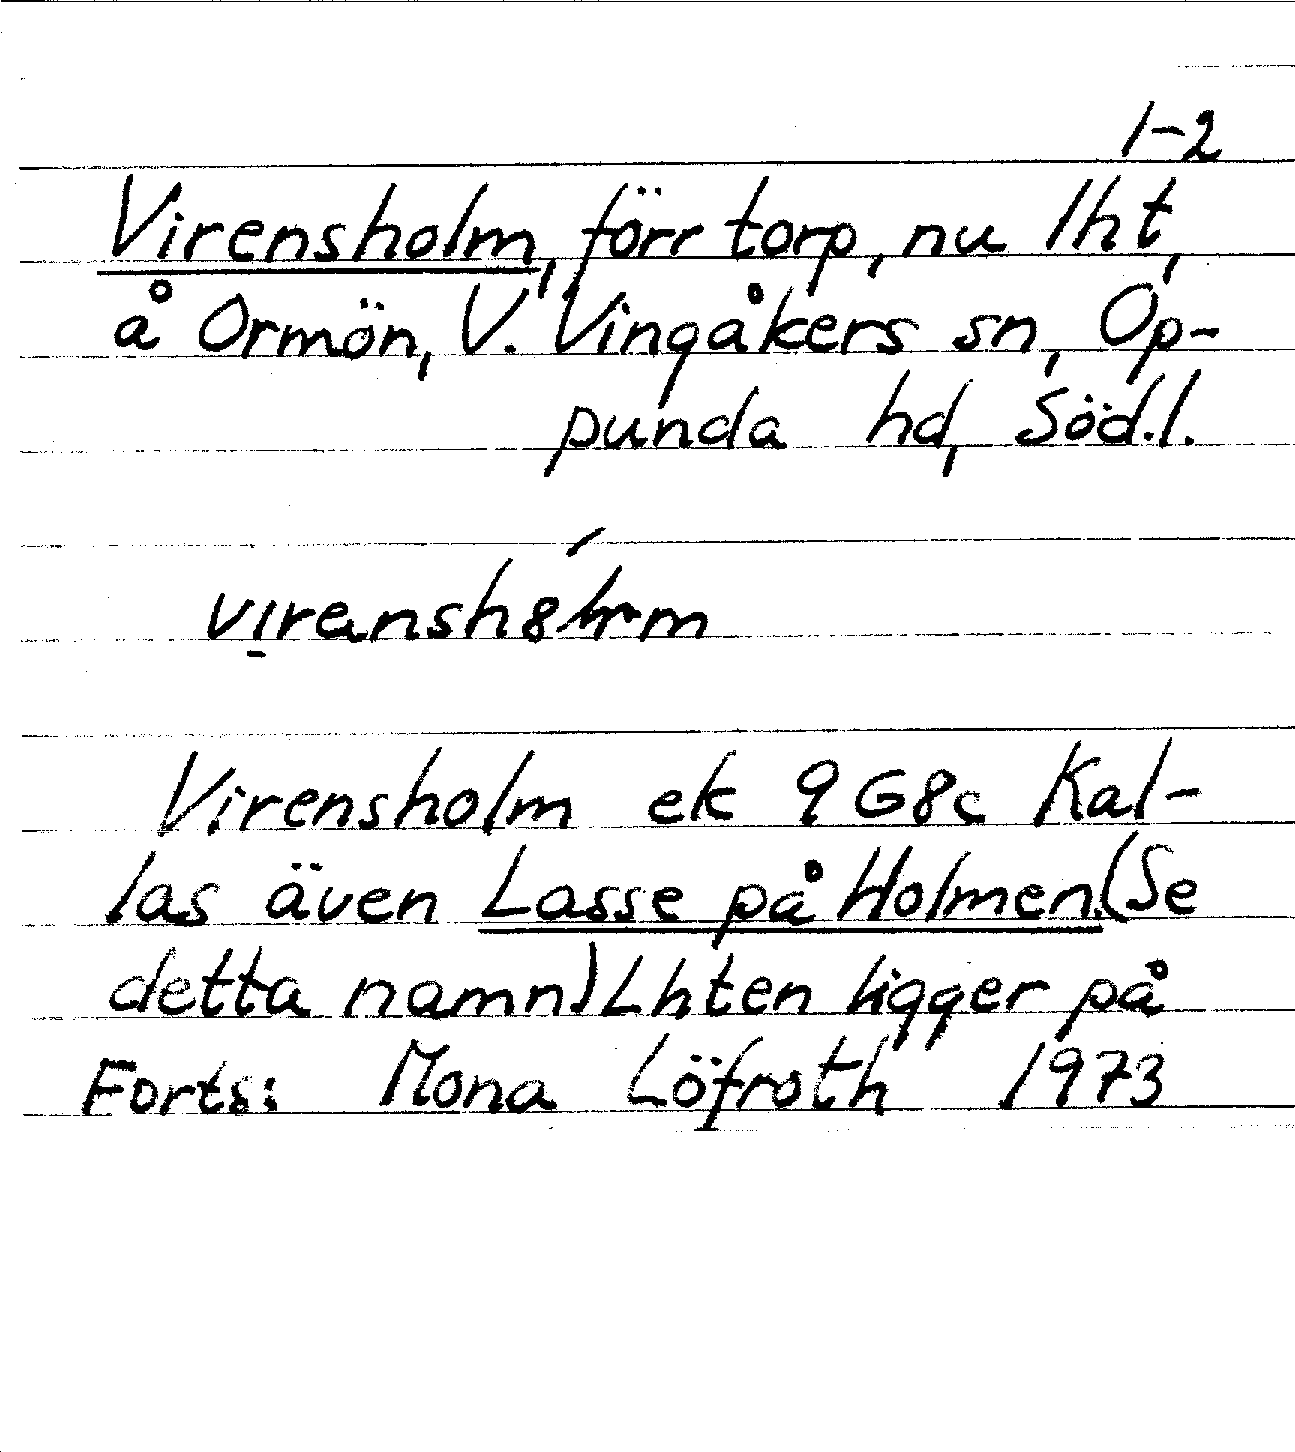 1-2
Virensholm, förr torp, nu lht,
å Ormön, V. Vingåkers sn, Op-
punda hd, Söd.l.
Virensholm ek 9G8c Kal-
las även Lasse på Holmen. (Se
detta namn) Lhten ligger på
Forts: Mona Löfroth 1973